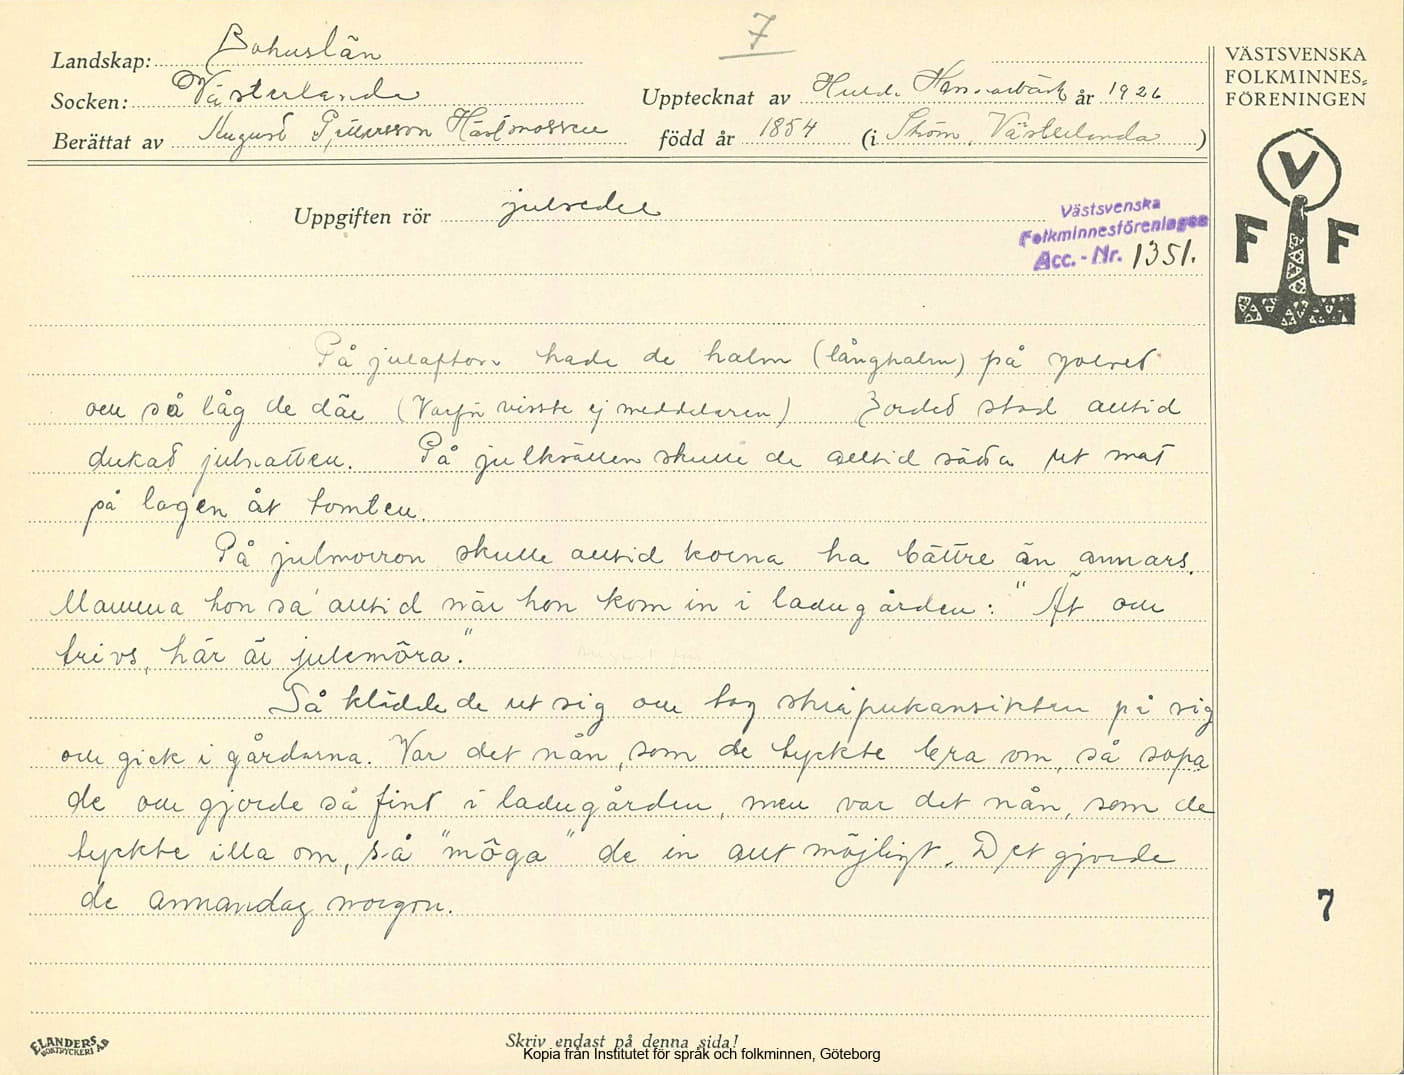 7
Landskap: Bohuslän
Socken: Västerlanda
Upptecknat av Hulda Hammarbäck år 1926
Berättat av August Pettersson Hästmossen
född år 1854 (i Ström, Västerlanda)
VÄSTSVENSKA
FOLKMINNES-
FÖRENINGEN
V
F F
Uppgiften rör julseder
Västsvenska
Folkminnesföreningen
Acc.-Nr. 1351.
På julafton hade de halm (långhalm) på golvet
och så låg de där (Varför visste ej meddelaren) Bordet stod alltid
dukat julnatten. På julkvällen skulle de alltid sätta ut mat
på logen åt tomten.
På julmorron skulle alltid korna ha bättre än annars.
Mamma hon sa' alltid när hon kom in i ladugården: "Ät och
trivs, här är julemöra."
Så klädde de ut sig och tog skråpukansikten på sig
och gick i gårdarna. Var det nån, som de tyckte bra om, så sopa
de och gjorde så fint i ladugården, men var det nån, som de
tyckte illa om, så "möga" de in allt möjligt. Det gjorde
de annandag morgon.
7
ELANDERS
BOKTRYCKERI AB
Skriv endast på denna sida!
Kopia från Institutet för språk och folkminnen, Göteborg